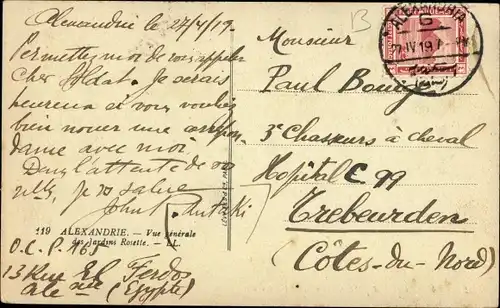 Alexandrie le 27/4/19.
Permettez moi de vous appeler
Cher Soldat. Je serais
heureux si vous vouliez
bien nouer une correspon
dance avec moi.
Dans l'attente de vos
je vous salue
John
119 ALEXANDRIE. — Vue générale
des Jardins Rosette. — LL.
O.C.P. 165
13 Rue El Ferdos
Alexie (Egypte)
Monsieur
Paul
3e Chasseurs à cheval
Hôpital C 99
Trebeurden
(Côtes-du-Nord)
ALEXANDRIA
27 IV 19